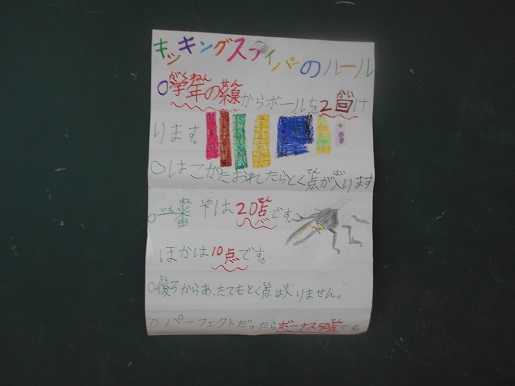 キッキングスナイパーのルール
○学年の線からボールを2回け
ります。
○はこがたおれたらとく点が入ります
○一番 やは20点です。
ほかは10点です。
○後ろからあたってもとく点は入りません。
○パーフェクトだったらボーナス